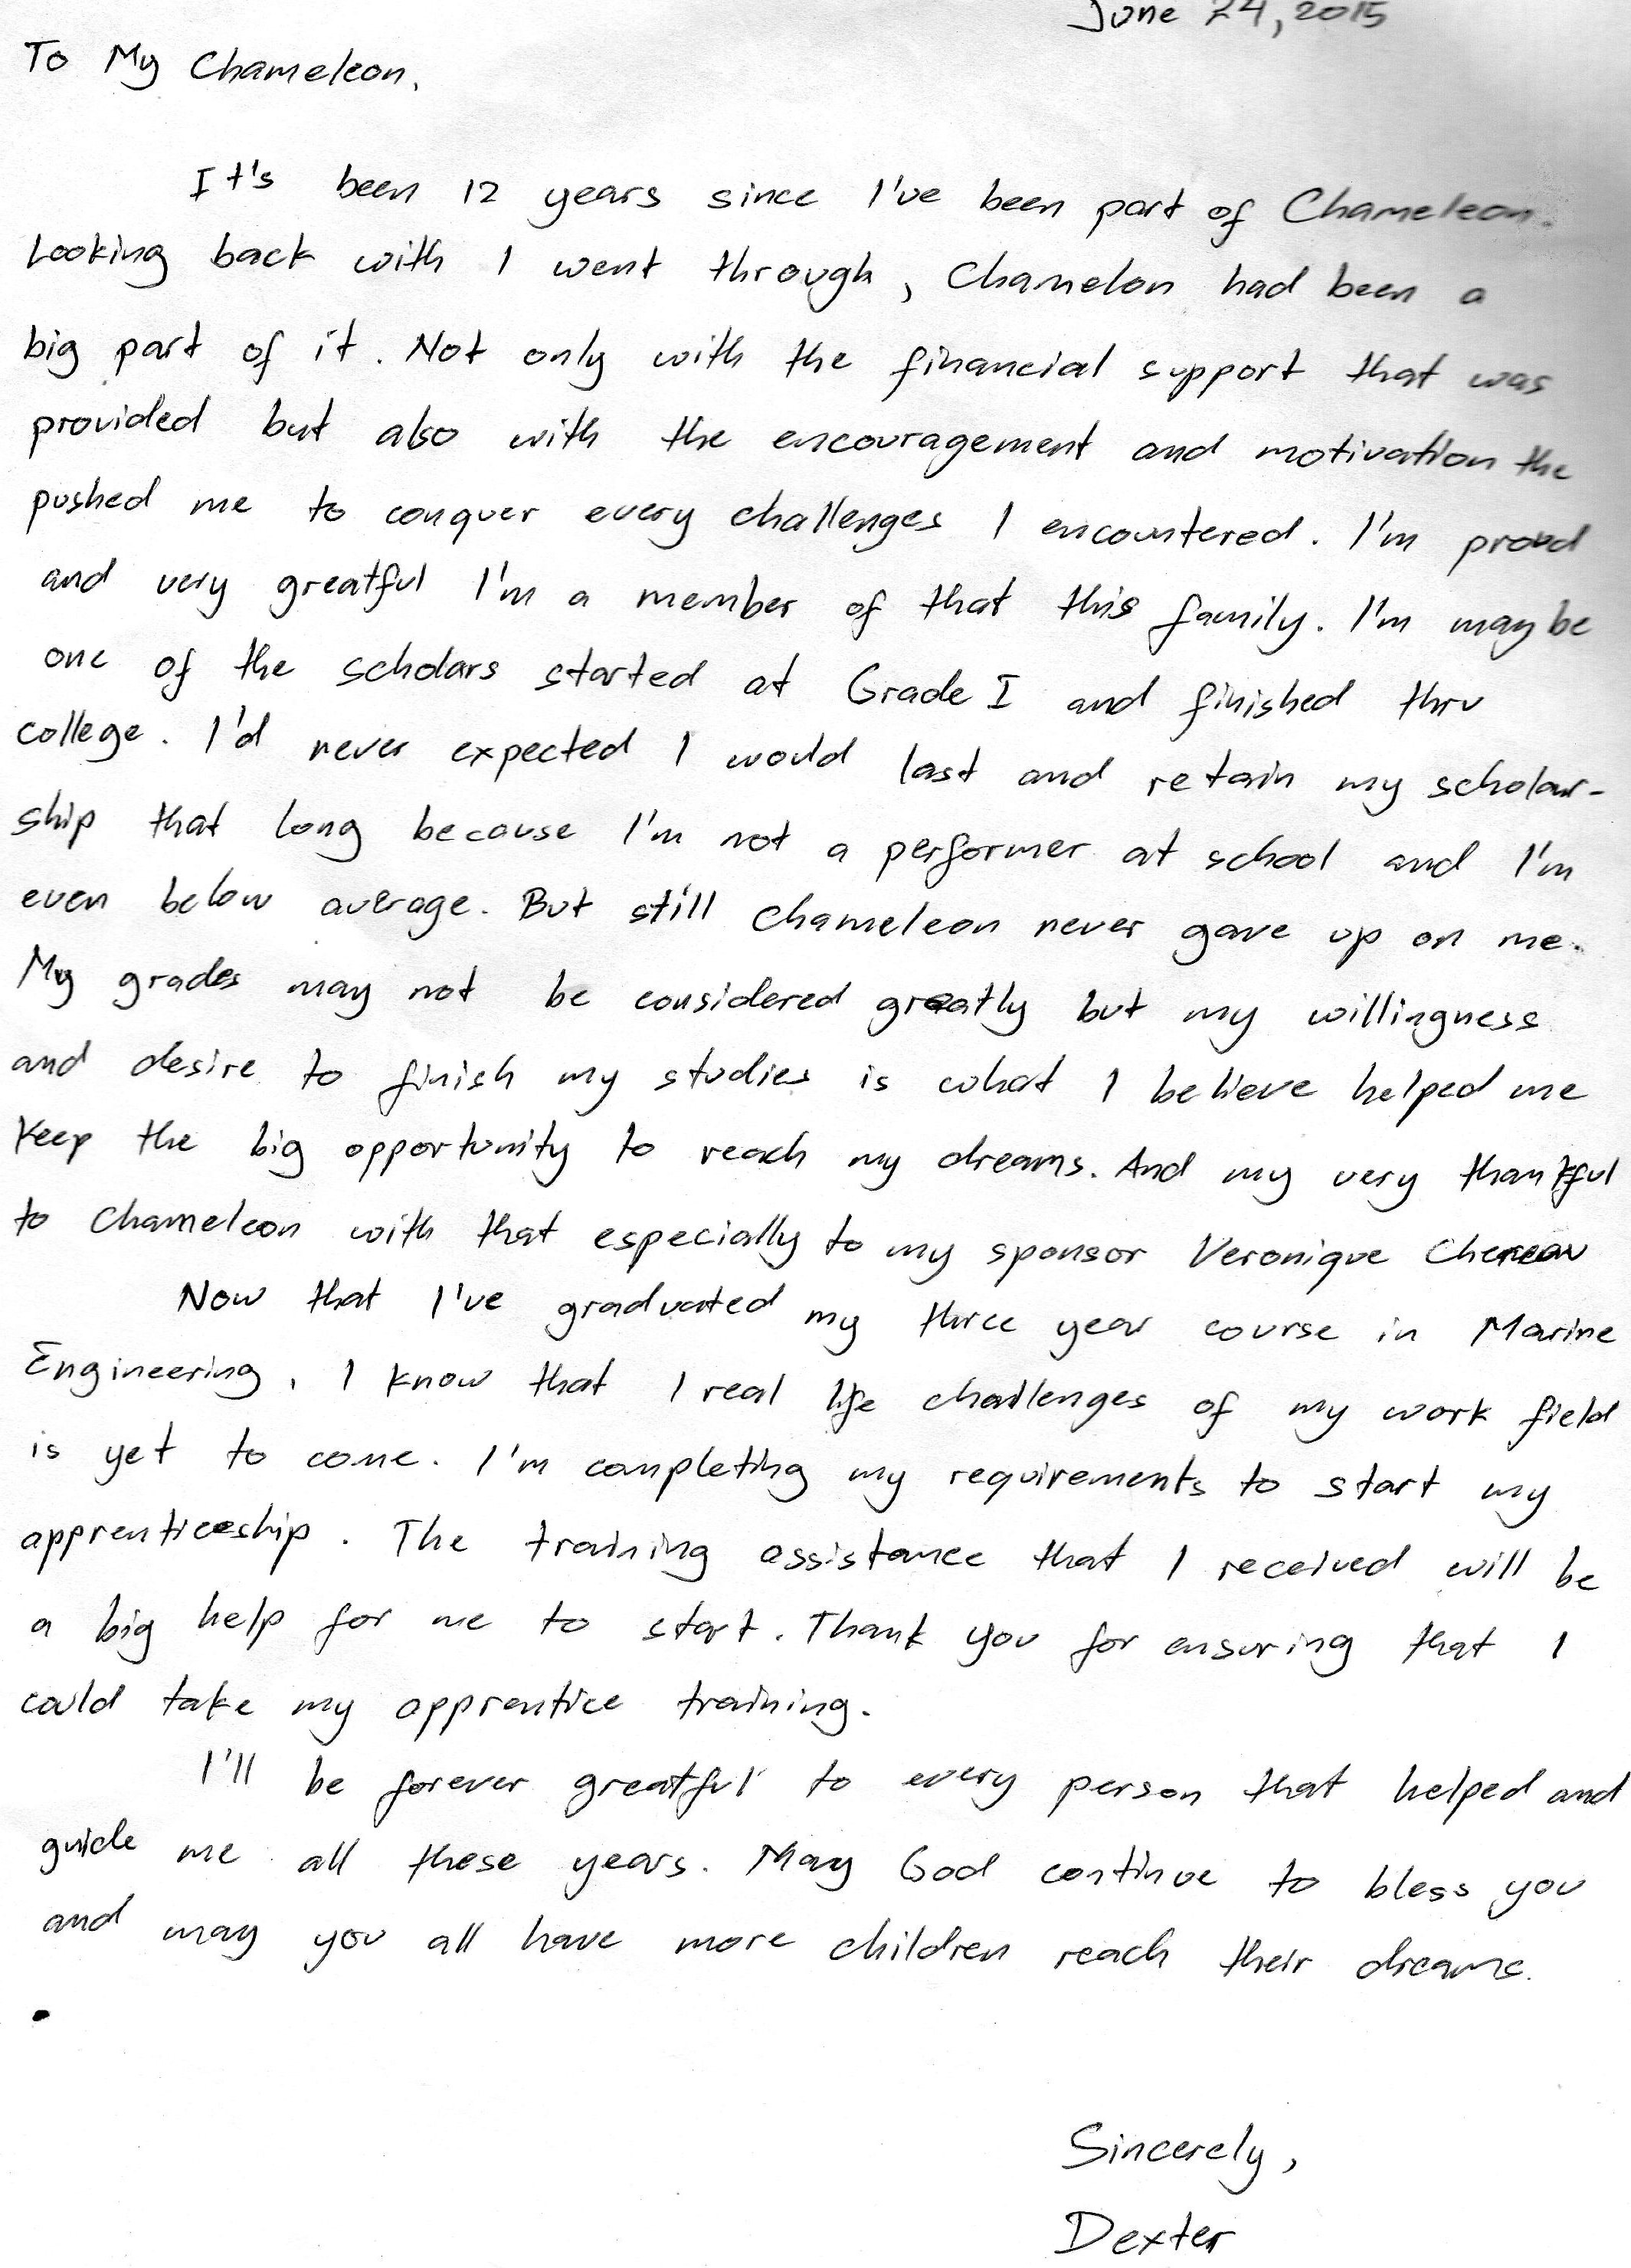 June 24, 2015
To My Chameleon,
It's been 12 years since I've been part of Chameleon.
Looking back with I went through, Chamelon had been a
big part of it. Not only with the financial support that was
provided but also with the encouragement and motivation the
pushed me to conquer every challenges I encountered. I'm proud
and very greatful I'm a member of that this family. I'm maybe
one of the scholars started at Grade I and finished thru
college. I'd never expected I would last and retain my scholar-
ship that long because I'm not a performer at school and I'm
even below average. But still Chameleon never gave up on me.
My grades may not be considered greatly but my willingness
and desire to finish my studies is what I believe helped me
keep the big opportunity to reach my dreams. And my very thankful
to Chameleon with that especially to my sponsor Veronique Chereau
Now that I've graduated my three year course in Marine
Engineering, I know that I real life challenges of my work field
is yet to come. I'm completing my requirements to start my
apprenticeship. The training assistance that I received will be
a big help for me to start. Thank you for ensuring that I
could take my apprentice training.
I'll be forever greatful to every person that helped and
guide me all these years. May God continue to bless you
and may you all have more children reach their dreams.
Sincerely,
Dexter